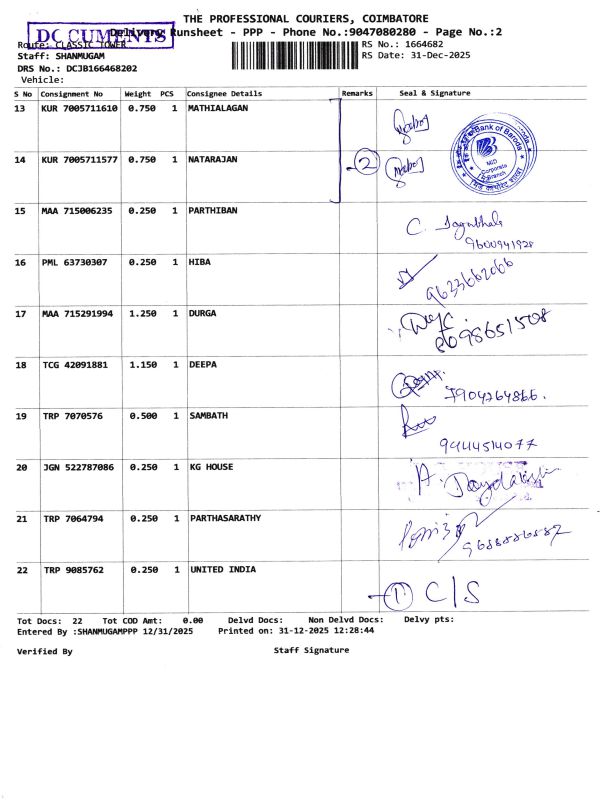 THE PROFESSIONAL COURIERS, COIMBATORE
DOCUMENTS
Delivery Runsheet - PPP - Phone No.:9047080280 - Page No.:2
Route: CLASSIC TOWER
RS No.: 1664682
Staff: SHANMUGAM
RS Date: 31-Dec-2025
DRS No.: DCJB166468202
Vehicle:
S No Consignment No Weight PCS Consignee Details Remarks Seal & Signature
13 KUR 7005711610 0.750 1 MATHIALAGAN
14 KUR 7005711577 0.750 1 NATARAJAN 2
Bank of Baroda
Corporate
Branch
15 MAA 715006235 0.250 1 PARTHIBAN
C.
9600941928
16 PML 63730307 0.250 1 HIBA
9633662066
17 MAA 715291994 1.250 1 DURGA
98651508
18 TCG 42091881 1.150 1 DEEPA
7904264866.
19 TRP 7070576 0.500 1 SAMBATH
9444514077
20 JGN 522787086 0.250 1 KG HOUSE
A.
21 TRP 7064794 0.250 1 PARTHASARATHY
22 TRP 9085762 0.250 1 UNITED INDIA
1 C/S
Tot Docs: 22 Tot COD Amt: 0.00 Delvd Docs: Non Delvd Docs: Delvy pts:
Entered By :SHANMUGAMPPP 12/31/2025 Printed on: 31-12-2025 12:28:44
Verified By Staff Signature